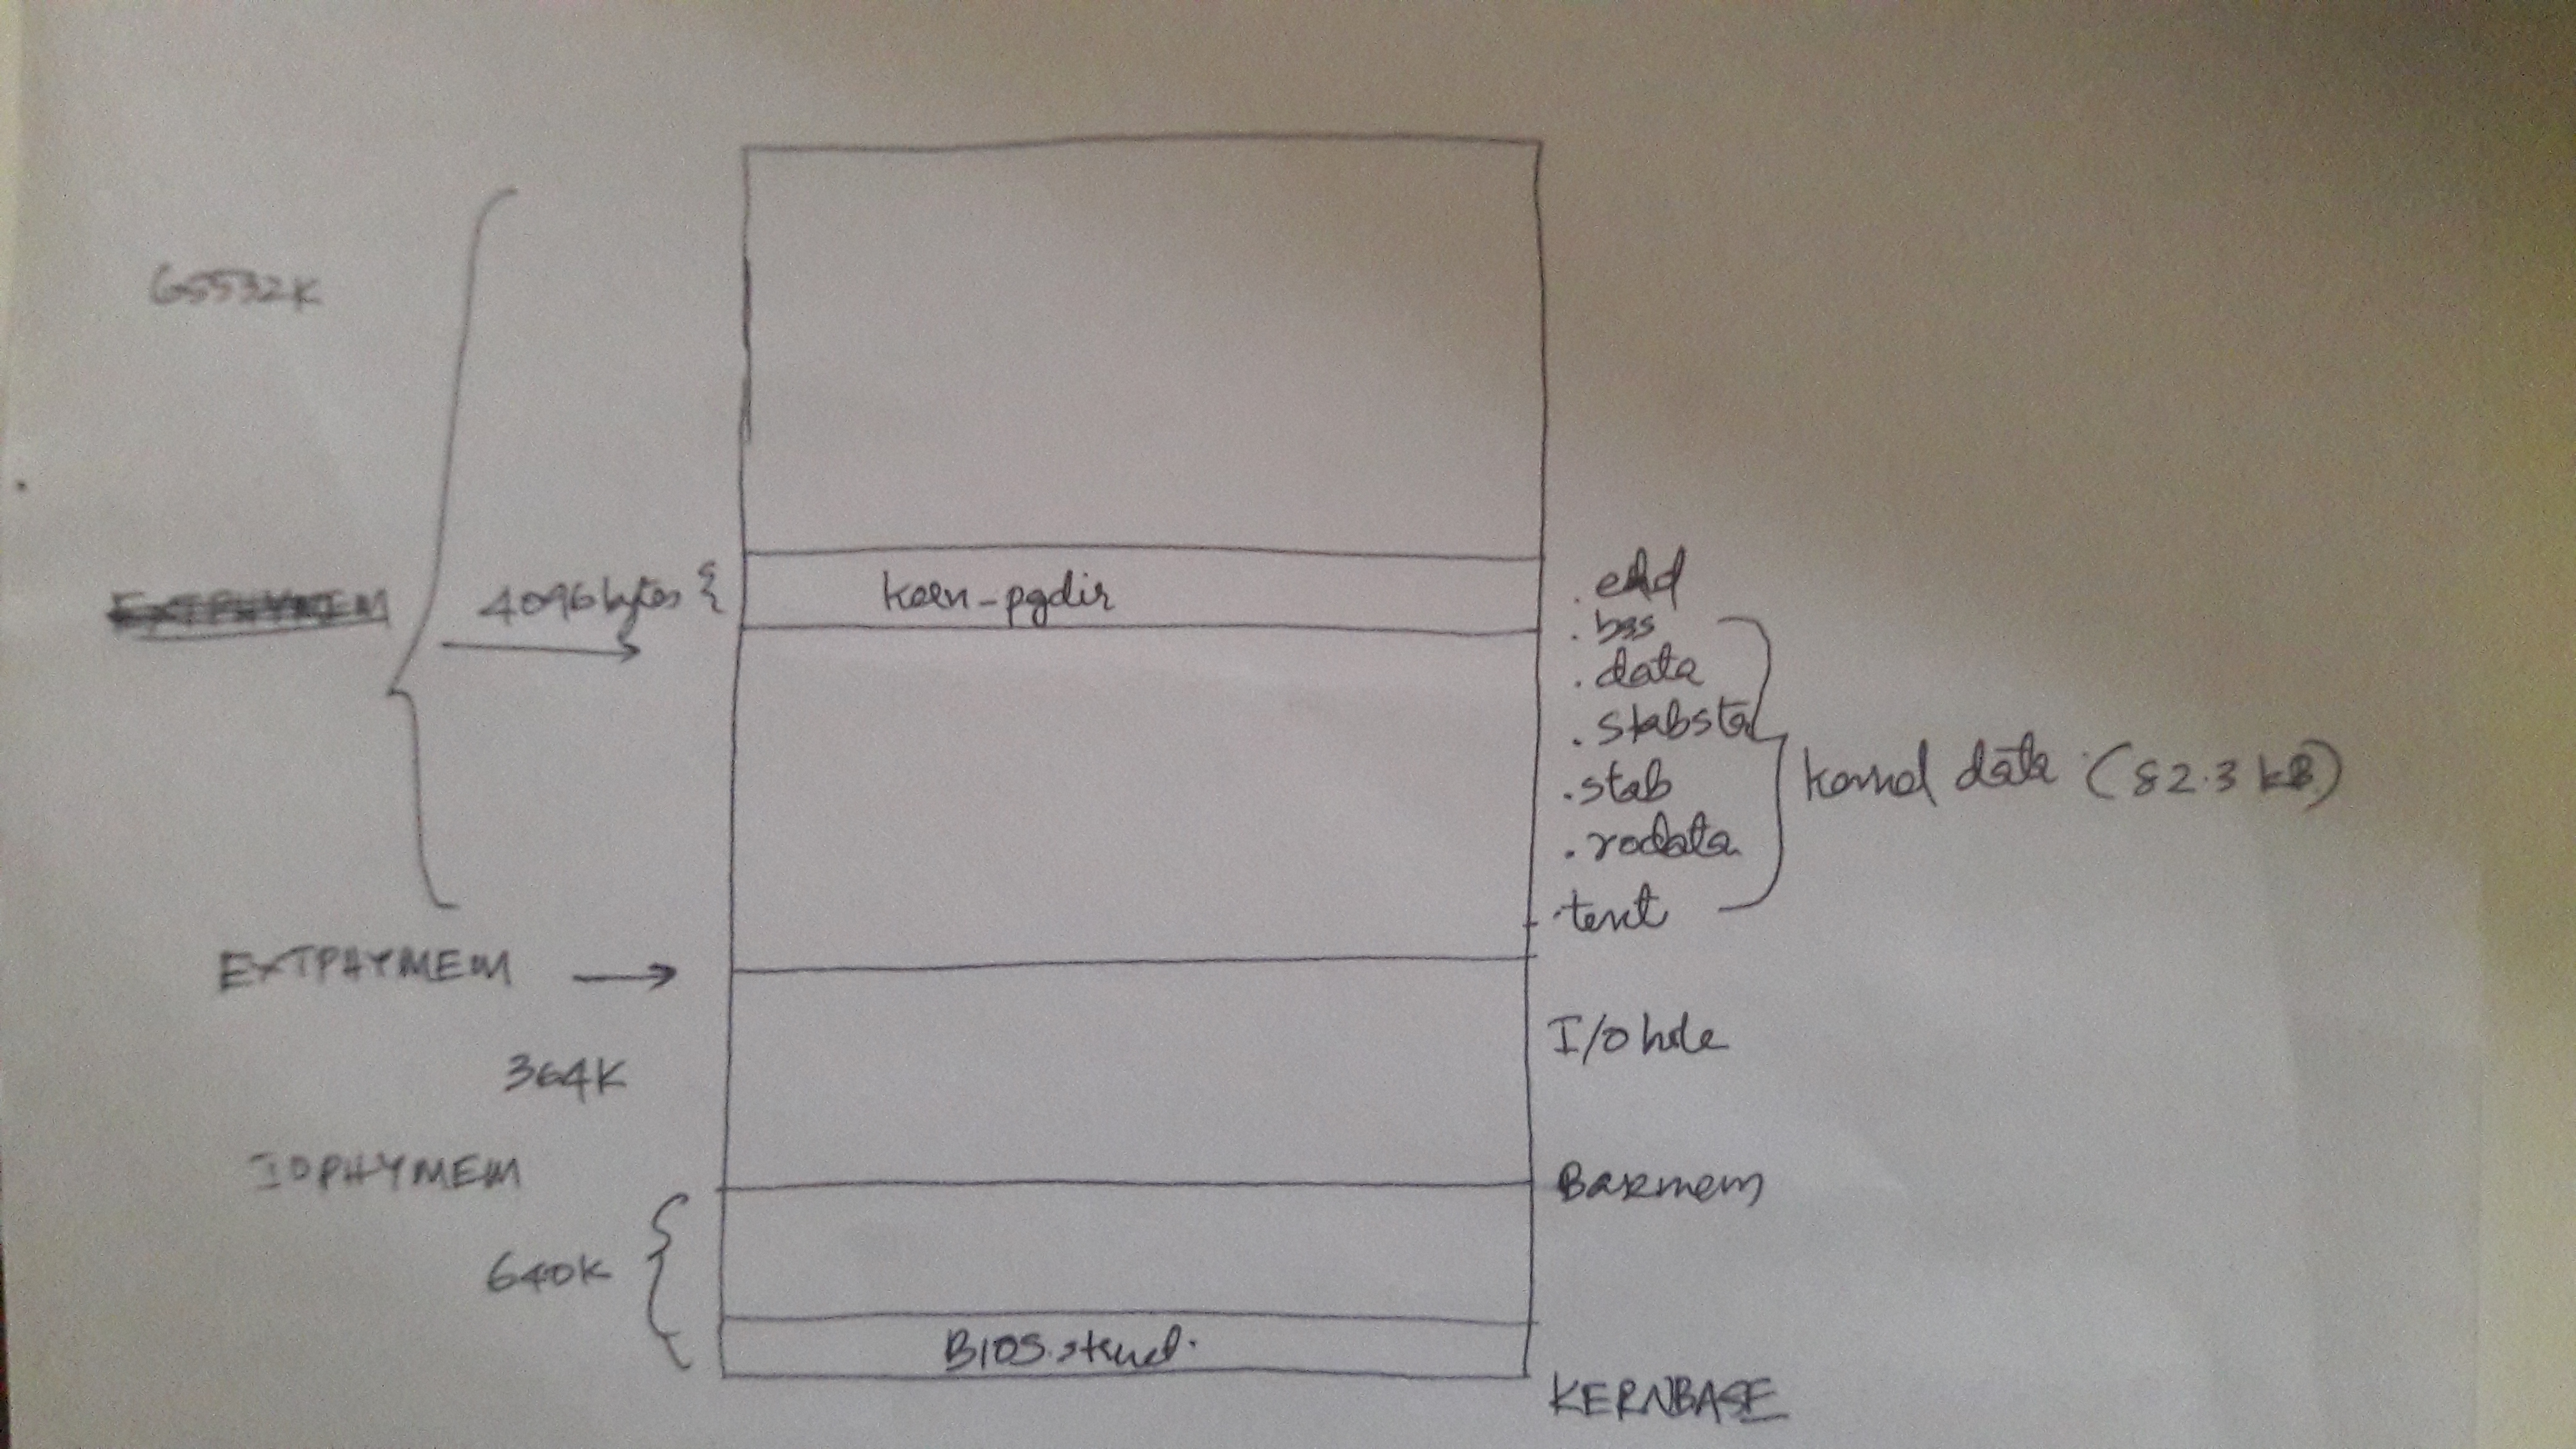 65532K
4096 bytes
kern-pgdir
.end
.bss
.data
.stabstr
.stab
.rodata
.text
kernel data (82.3 kB)
EXTPHYMEM
I/O hole
364K
IOPHYMEM
Basemem
640K
BIOS
KERNBASE